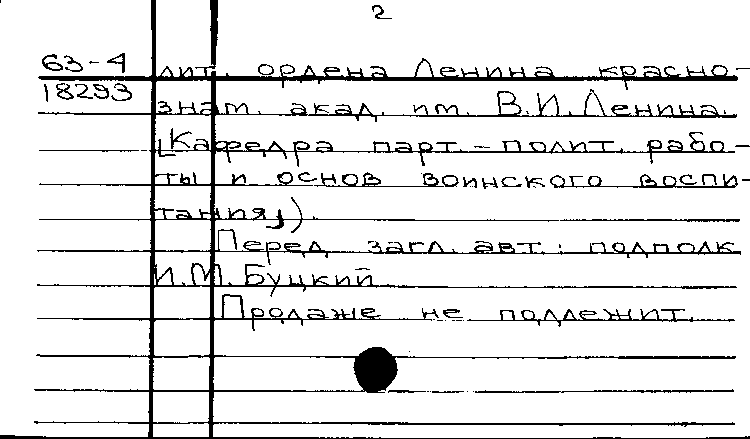 2
63-4
18293
лит. ордена Ленина красно-
знам. акад. им. В.И.Ленина.
[Кафедра парт.-полит. рабо-
ты и основ воинского воспи-
тания]).
Перед загл. авт.: подполк
И.М. Буцкий
Продаже не подлежит.